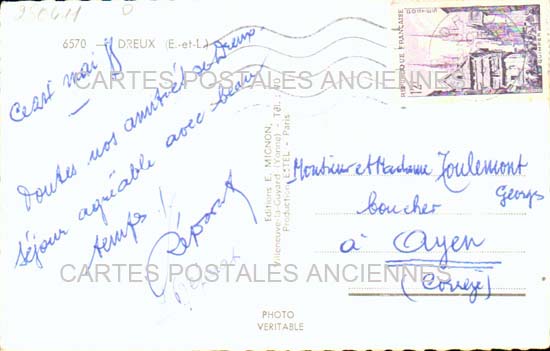 250411
6570 DREUX (E.-et-L.)
Ce 27 mai 58
Toutes nos amitiés de Dreux
Séjour agréable avec beau
temps !
Editions E. MIGNON,
Villeneuve-la-Guyard (Yonne) - Tél.
Production ESTEL - Paris
REPUBLIQUE FRANÇAISE
12F
QUIMPER
Monsieur et Madame Toulemont
Georges
boucher
à Ayen
(Corrèze)
CARTES POSTALES ANCIENNES
CARTES POSTALES ANCIENNES
PHOTO
VERITABLE